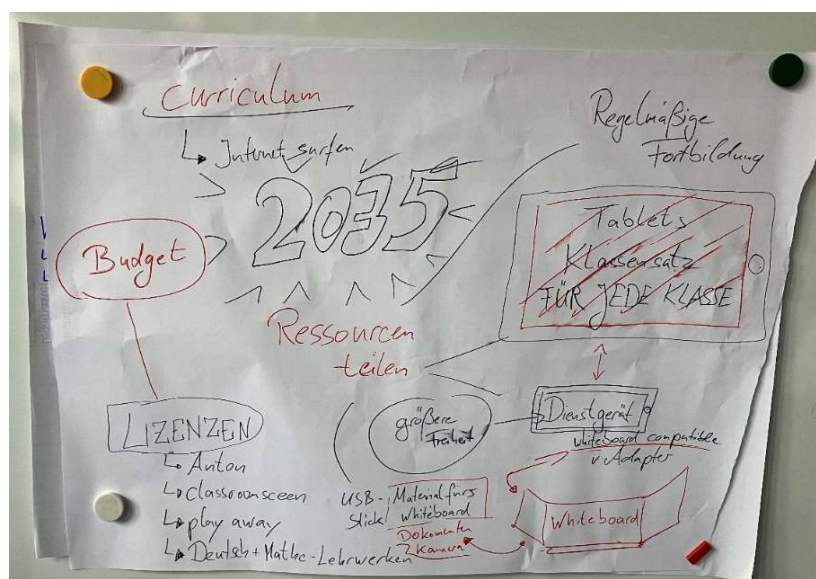 Curriculum
↳ Internet surfen
2035
Regelmäßige
Fortbildung
Budget
Tablets
Klassensatz
FÜR JEDE KLASSE
Ressourcen
teilen
LIZENZEN
↳ Anton
↳ Classroomsceen
↳ play away
↳ Deutsch + Mathe-Lehrwerken
größere
Freiheit
Dienstgerät
whiteboard compatible
v Adapter
USB-
Stick
Material fürs
whiteboard
Dokumenten
Kamera
Whiteboard